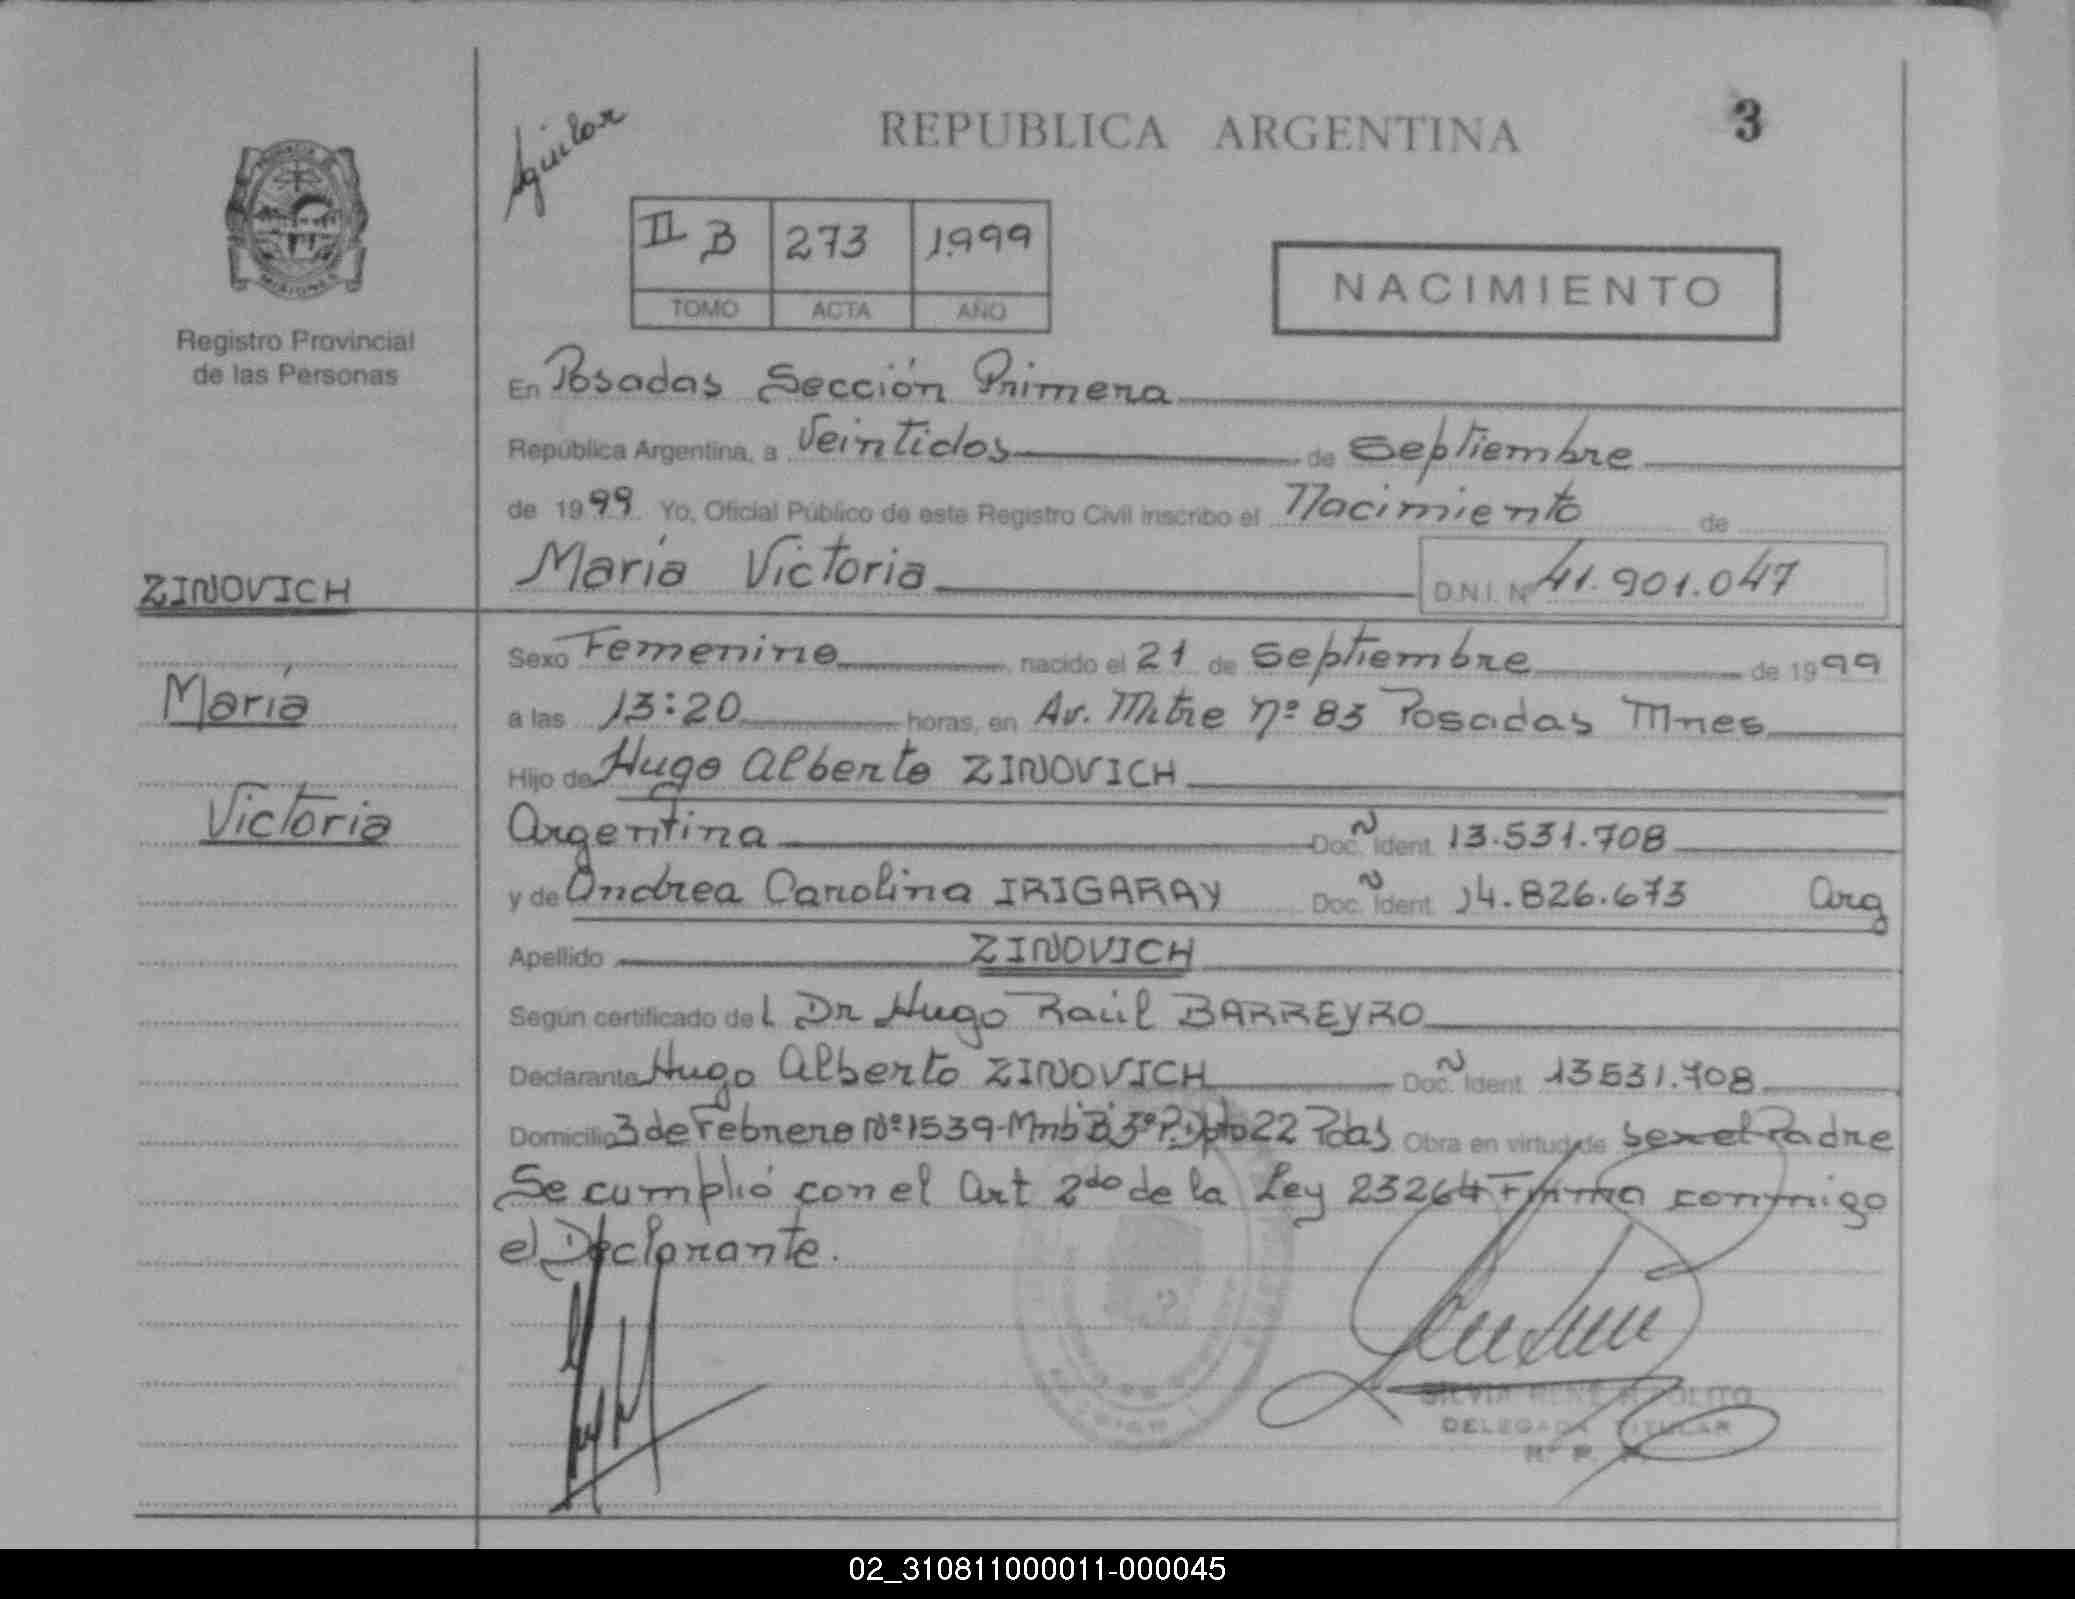 REPUBLICA ARGENTINA
3
Aguilar
II B 273 1999
TOMO ACTA AÑO
NACIMIENTO
Registro Provincial
de las Personas
En Posadas Sección Primera
República Argentina, a Veintidos de Septiembre
de 1999 Yo, Oficial Público de este Registro Civil inscribo el Nacimiento de
ZINOVICH
María Victoria D.N.I. Nº 41.901.047
Sexo Femenino, nacido el 21 de Septiembre de 1999
María
a las 13:20 horas, en Av. Mitre nº 83 Posadas Mnes
Hijo de Hugo Alberto ZINOVICH
Victoria
Argentina Doc. Ident. 13.531.708
y de Andrea Carolina IRIGARAY Doc. Ident. 14.826.673 Arg
Apellido ZINOVICH
Según certificado del Dr Hugo Raúl BARREYRO
Declarante Hugo Alberto ZINOVICH Doc. Ident. 13531.708
Domicilio 3 de Febrero Nº 1539-Mnb "B" 3º P. Dpto 22 Pdas Obra en virtud de ser el Padre
Se cumplió con el Art 2do de la Ley 23264 Firma conmigo
el Declarante.
DELEGADA TITULAR
02_310811000011-000045